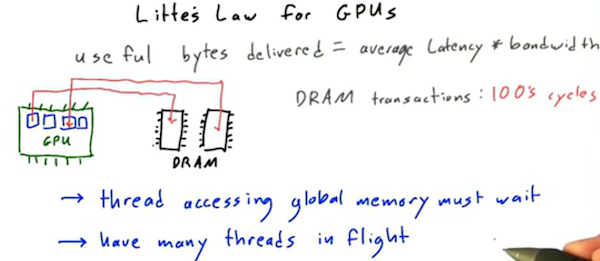 Little's Law for GPUs
useful bytes delivered = average latency * bandwidth
DRAM transactions: 100's cycles
GPU
DRAM
→ thread accessing global memory must wait
→ have many threads in flight